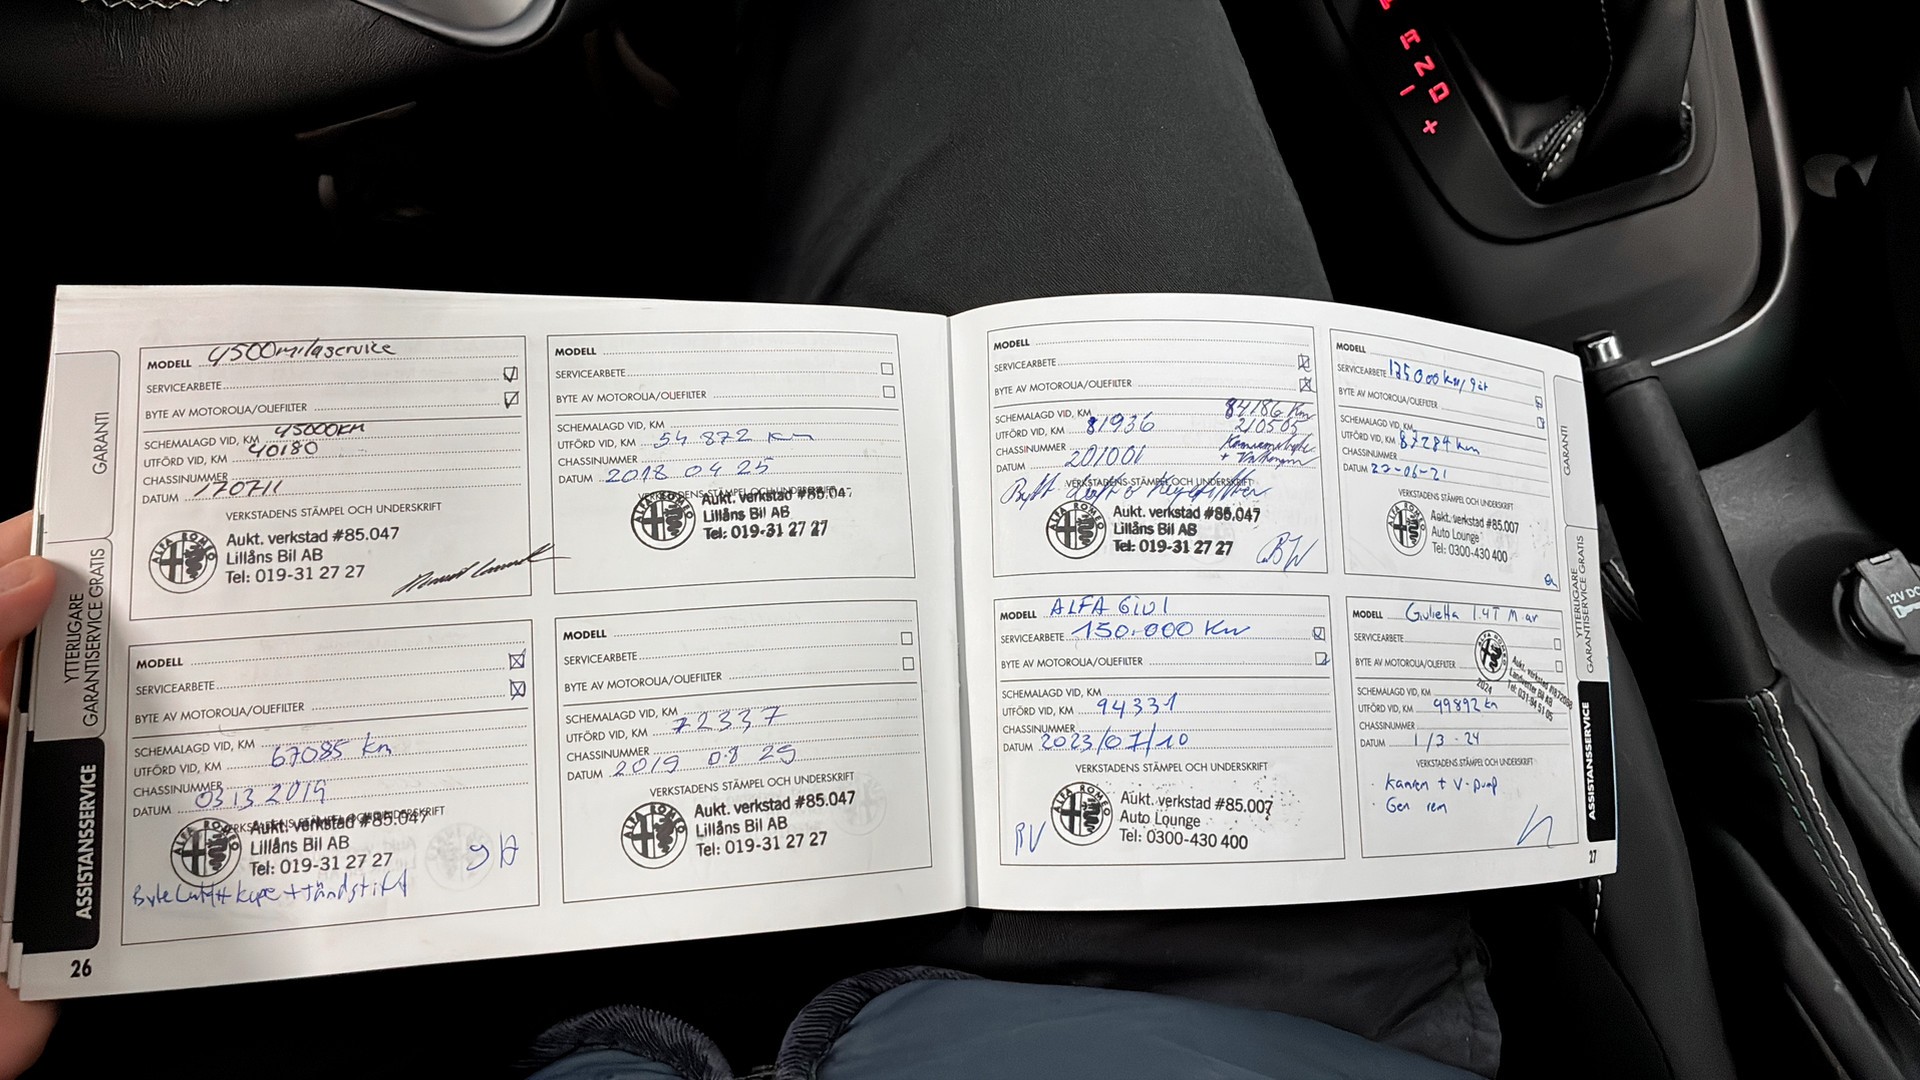 P
R
N D
- +
12V DC
GARANTI
YTTERLIGARE
GARANTISERVICE GRATIS
ASSISTANSSERVICE
26
MODELL 4500milaservice
SERVICEARBETE
BYTE AV MOTOROLJA/OLJEFILTER
SCHEMALAGD VID, KM 45000KM
UTFÖRD VID, KM 40180
CHASSINUMMER
DATUM 170711
VERKSTADENS STÄMPEL OCH UNDERSKRIFT
ALFA ROMEO
Aukt. verkstad #85.047
Lillåns Bil AB
Tel: 019-31 27 27
MODELL
SERVICEARBETE
BYTE AV MOTOROLJA/OLJEFILTER
SCHEMALAGD VID, KM
UTFÖRD VID, KM 54 872 km
CHASSINUMMER
DATUM 2018 04 25
VERKSTADENS STÄMPEL OCH UNDERSKRIFT
ALFA ROMEO
Aukt. verkstad #85.047
Lillåns Bil AB
Tel: 019-31 27 27
MODELL
SERVICEARBETE
BYTE AV MOTOROLJA/OLJEFILTER
SCHEMALAGD VID, KM
UTFÖRD VID, KM 67085 km
CHASSINUMMER
DATUM 03 13 2019
VERKSTADENS STÄMPEL OCH UNDERSKRIFT
ALFA ROMEO
Aukt. verkstad #85.047
Lillåns Bil AB
Tel: 019-31 27 27
Byte Luft + kupe + Tändstift
MODELL
SERVICEARBETE
BYTE AV MOTOROLJA/OLJEFILTER
SCHEMALAGD VID, KM
UTFÖRD VID, KM 72337
CHASSINUMMER
DATUM 2019 08 29
VERKSTADENS STÄMPEL OCH UNDERSKRIFT
ALFA ROMEO
Aukt. verkstad #85.047
Lillåns Bil AB
Tel: 019-31 27 27
MODELL
SERVICEARBETE
BYTE AV MOTOROLJA/OLJEFILTER
SCHEMALAGD VID, KM 84186 Km
UTFÖRD VID, KM 81936 210505
CHASSINUMMER Kamremsbyte
DATUM 201001 + Vattenpump
VERKSTADENS STÄMPEL OCH UNDERSKRIFT
Bytt Luft &
ALFA ROMEO
Aukt. verkstad #85.047
Lillåns Bil AB
Tel: 019-31 27 27
MODELL
SERVICEARBETE 135000 km/9år
BYTE AV MOTOROLJA/OLJEFILTER
SCHEMALAGD VID, KM
UTFÖRD VID, KM 87284 km
CHASSINUMMER
DATUM 22-06-21
VERKSTADENS STÄMPEL OCH UNDERSKRIFT
ALFA ROMEO
Aukt. verkstad #85.007
Auto Lounge
Tel: 0300-430 400
MODELL ALFA Giul
SERVICEARBETE 150.000 Km
BYTE AV MOTOROLJA/OLJEFILTER
SCHEMALAGD VID, KM
UTFÖRD VID, KM 94331
CHASSINUMMER
DATUM 2023/07/10
VERKSTADENS STÄMPEL OCH UNDERSKRIFT
ALFA ROMEO
Aukt. verkstad #85.007
Auto Lounge
Tel: 0300-430 400
MODELL Giulietta 1.4T M-air
SERVICEARBETE
BYTE AV MOTOROLJA/OLJEFILTER
ALFA ROMEO
2024
Landvetter Bil AB
Tel: 031-94 51 05
SCHEMALAGD VID, KM
UTFÖRD VID, KM 99892 km
CHASSINUMMER
DATUM 1/3-24
VERKSTADENS STÄMPEL OCH UNDERSKRIFT
· Kamrem + V-pump
· Gen rem
GARANTI
YTTERLIGARE
GARANTISERVICE GRATIS
ASSISTANSSERVICE
27